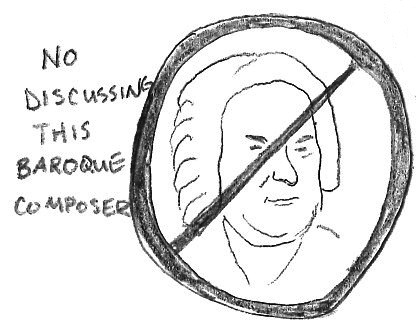 NO
DISCUSSING
THIS
BAROQUE
COMPOSER